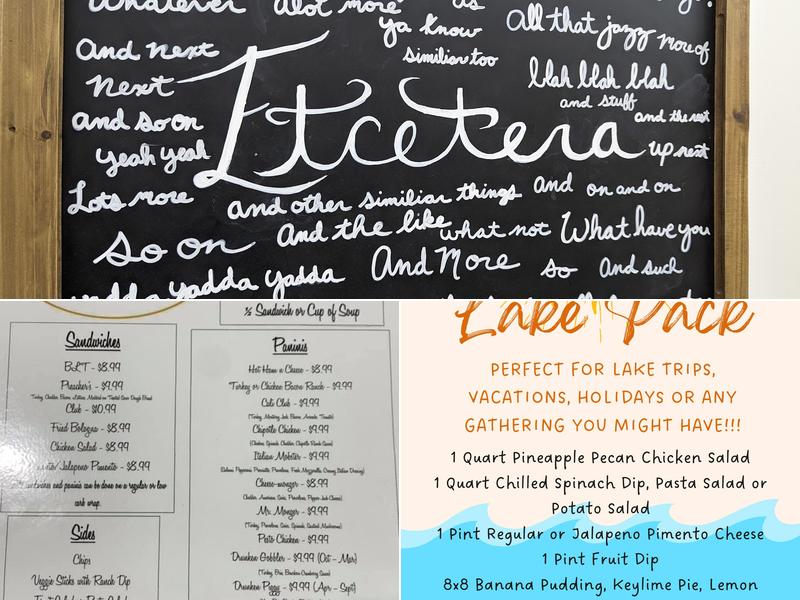 Whatever Alot more as
ya know All that jazz more of
And next similiar too
next blah blah blah
and stuff
and so on Etcetera and the rest
yeah yeah up next
Lots more and other similiar things and on and on
so on And the like what not What have you
yadda yadda And More so And such
½ Sandwich or Cup of Soup
Sandwiches
BLT - $8.99
Preacher's - $9.99
Club - $10.99
Fried Bologna - $8.99
Chicken Salad - $8.99
Jalapeno Pimento - $8.99
and paninis can be done on a regular or low
carb wrap.
Sides
Chips
Veggie Sticks with Ranch Dip
Paninis
Hot Ham n Cheese - $8.99
Turkey or Chicken Bacon Ranch - $9.99
Cali Club - $9.99
(Turkey, Monterey Jack, Bacon, Avocado, Tomato)
Chipotle Chicken - $9.99
(Chicken, Spinach, Cheddar, Chipotle Ranch Sauce)
Italian Mobster - $9.99
(Salami, Pepperoni, Prosciutto, Provolone, Fresh Mozzarella, Creamy Italian Dressing)
Cheese-monger - $8.99
(Cheddar, American, Gouda, Provolone, Pepper Jack Cheese)
Mr. Monger - $9.99
(Turkey, Provolone, Gouda, Spinach, Sauteed Mushrooms)
Pesto Chicken - $9.99
Drunken Gobbler - $9.99 (Oct - Mar)
(Turkey, Brie, Bourbon Cranberry Sauce)
Drunken Piggy - $9.99 (Apr - Sept)
Lake Pack
PERFECT FOR LAKE TRIPS,
VACATIONS, HOLIDAYS OR ANY
GATHERING YOU MIGHT HAVE!!!
1 Quart Pineapple Pecan Chicken Salad
1 Quart Chilled Spinach Dip, Pasta Salad or
Potato Salad
1 Pint Regular or Jalapeno Pimento Cheese
1 Pint Fruit Dip
8x8 Banana Pudding, Keylime Pie, Lemon